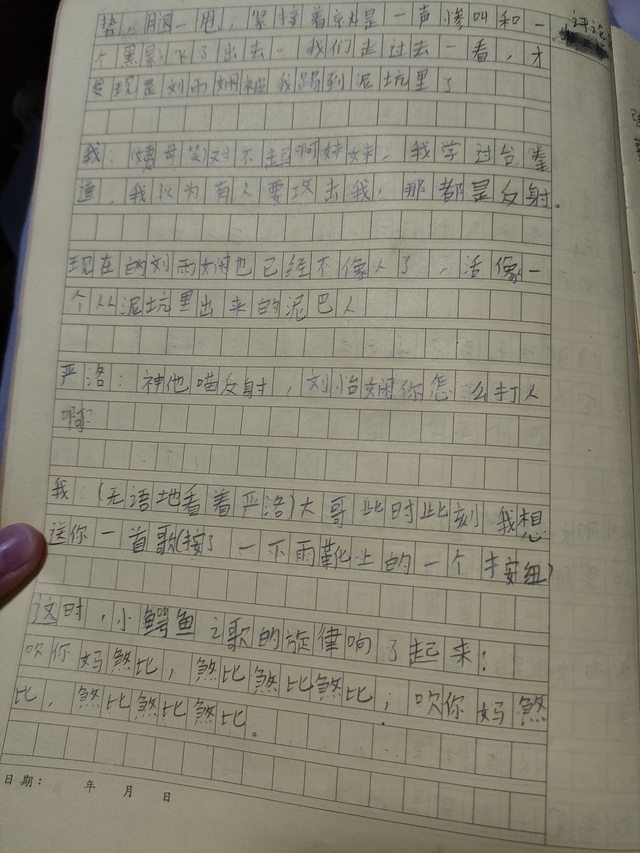 势，腿一甩，紧接着就是一声惨叫和一
个黑影飞了出去。我们走过去一看，才
发现是刘雨娴被我踢到泥坑里了
我：对不起啊妹妹，我学过台拳
道，我以为有人要攻击我，那都是反射。
现在的刘雨娴也已经不像人了，活像一
个从泥坑里出来的泥巴人
严洛：神他喵反射，刘怡娴你怎么打人
啊
我：(无语地看着严洛)大哥此时此刻我想
送你一首歌(按了一下雨靴上的一个按纽)
这时，小鳄鱼之歌的旋律响了起来：
吹你妈煞比，煞比煞比煞比；吹你妈煞
比，煞比煞比煞比。
日期： 年 月 日
评论